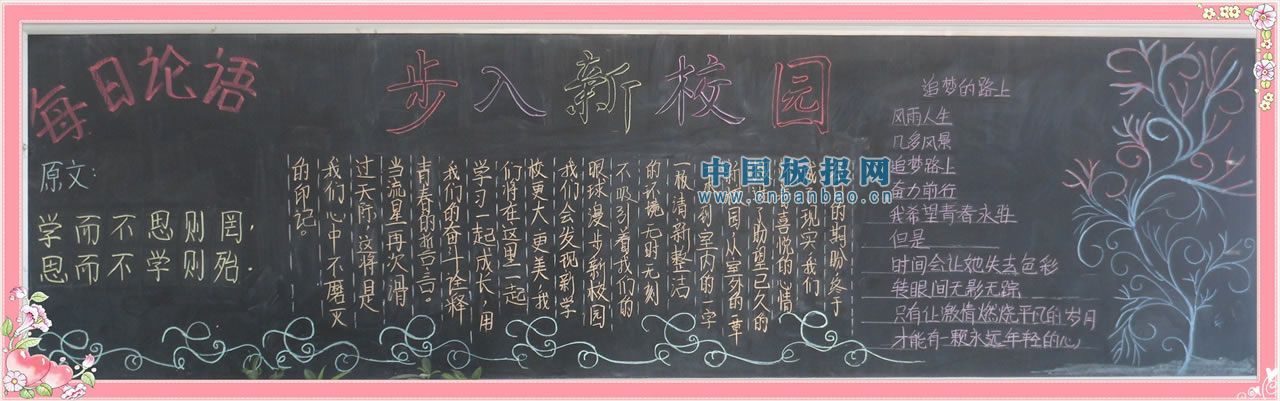 每日论语
原文:
学而不思则罔,
思而不学则殆.
步入新校园
的期盼,终于
现实,我们
喜悦的心情
了盼望已久的
园,从室外的一草
到室内的一字
一板,清新整洁
的环境,无时无刻
不吸引着我们的
眼球,漫步新校园
我们会发现新学
校更大,更美,我
们将在这里一起
学习,一起成长,用
我们的奋斗诠释
青春的哲言。
当流星再次滑
过天际,这将是
我们心中不磨灭
的印记。
追梦的路上
风雨人生
几多风景
追梦路上
奋力前行
我希望青春永驻
但是
时间会让她失去色彩
转眼间无影无踪
只有让激情燃烧平凡的岁月
才能有一颗永远年轻的心
中国板报网
www.cnbanbao.cn